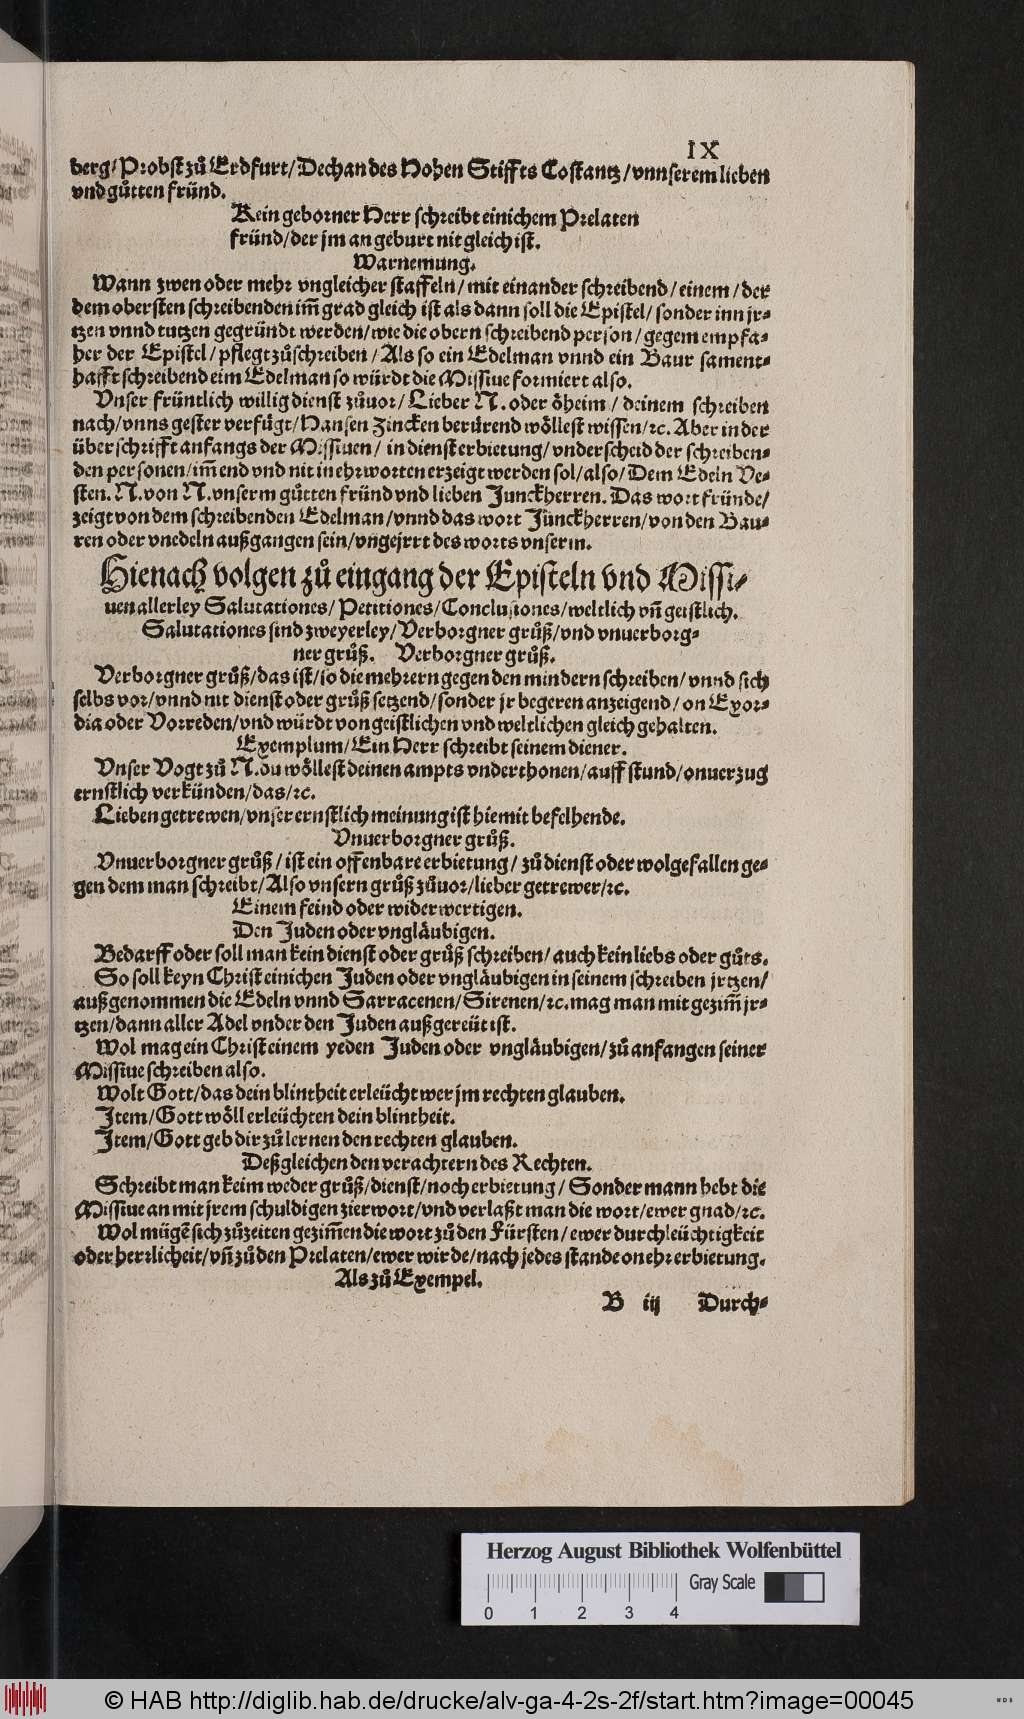 IX
berg/Probst zů Erdfurt/Dechan des Hohen Stiffts Costantz/vnnserem lieben
vnd gůtten fründ.
Kein geborner Herr schreibt einichem Prelaten
fründ/der jm an geburt nit gleich ist.
Warnemung.
Wann zwen oder mehr vngleicher staffeln/mit einander schreibend/einem/der
dem obersten schreibenden im̃ grad gleich ist als dann soll die Epistel/sonder inn jr-
tzen vnnd tutzen gegründt werden/wie die obern schreibend person/gegem empfa-
her der Epistel/pflegt zůschreiben/Als so ein Edelman vnnd ein Baur sament-
hafft schreibend eim Edelman so würdt die Missiue formiert also.
Vnser früntlich willig dienst zůuor/Lieber N. oder öheim/deinem schreiben
nach/vnns gester verfügt/Hansen Zincken berürend wöllest wissen/ꝛc. Aber in der
überschrifft anfangs der Missiuen/in dienst erbietung/vnderscheid der schreiben-
den personen/im̃end vnd nit in ehrworten erzeigt werden sol/also/Dem Edeln Ve-
sten. N. von N. vnserm gůtten fründ vnd lieben Junckherren. Das wort fründe/
zeigt von dem schreibenden Edelman/vnnd das wort Jünckherren/von den Bau-
ren oder vnedeln außgangen sein/vngejrrt des worts vnserm.
Hienach volgen zů eingang der Episteln vnd Missi-
uen allerley Salutationes/Petitiones/Conclusiones/weltlich vñ geistlich.
Salutationes sind zweyerley/Verborgner grůß/vnd vnuerborg-
ner grůß. Verborgner grůß.
Verborgner grůß/das ist/so die mehrern gegen den mindern schreiben/vnnd sich
selbs vor/vnnd nit dienst oder grůß setzend/sonder jr begeren anzeigend/on Exor-
dia oder Vorreden/vnd würdt von geistlichen vnd weltlichen gleich gehalten.
Exemplum/Ein Herr schreibt seinem diener.
Vnser Vogt zů N. du wöllest deinen ampts vnderthonen/auff stund/onuerzug
ernstlich verkünden/das/ꝛc.
Lieben getrewen/vnser ernstlich meinung ist hiemit befelhende.
Vnuerborgner grůß.
Vnuerborgner grůß/ist ein offenbare erbietung/zů dienst oder wolgefallen ge-
gen dem man schreibt/Also vnsern grůß zůuor/lieber getrewer/ꝛc.
Einem feind oder widerwertigen.
Den Juden oder vngläubigen.
Bedarff oder soll man kein dienst oder grůß schreiben/auch kein liebs oder gůts.
So soll keyn Christ einichen Juden oder vngläubigen in seinem schreiben jrtzen/
außgenommen die Edeln vnnd Sarracenen/Sirenen/ꝛc. mag man mit gezim̃ jr-
tzen/dann aller Adel vnder den Juden außgereüt ist.
Wol mag ein Christ einem yeden Juden oder vngläubigen/zů anfangen seiner
Missiue schreiben also.
Wolt Gott/das dein blintheit erleücht wer jm rechten glauben.
Item/Gott wöll erleüchten dein blintheit.
Item/Gott geb dir zů lernen den rechten glauben.
Deßgleichen den verachtern des Rechten.
Schreibt man keim weder grůß/dienst/noch erbietung/Sonder mann hebt die
Missiue an mit jrem schuldigen zierwort/vnd verlaßt man die wort/ewer gnad/ꝛc.
Wol mügẽ sich zůzeiten gezim̃en die wort zů den Fürsten/ewer durchleüchtigkeit
oder herrlicheit/vñ zů den Prelaten/ewer wirde/nach jedes stande on ehrerbietung.
Als zů Exempel.
B iij Durch-
Herzog August Bibliothek Wolfenbüttel
Gray Scale
0 1 2 3 4
© HAB http://diglib.hab.de/drucke/alv-ga-4-2s-2f/start.htm?image=00045